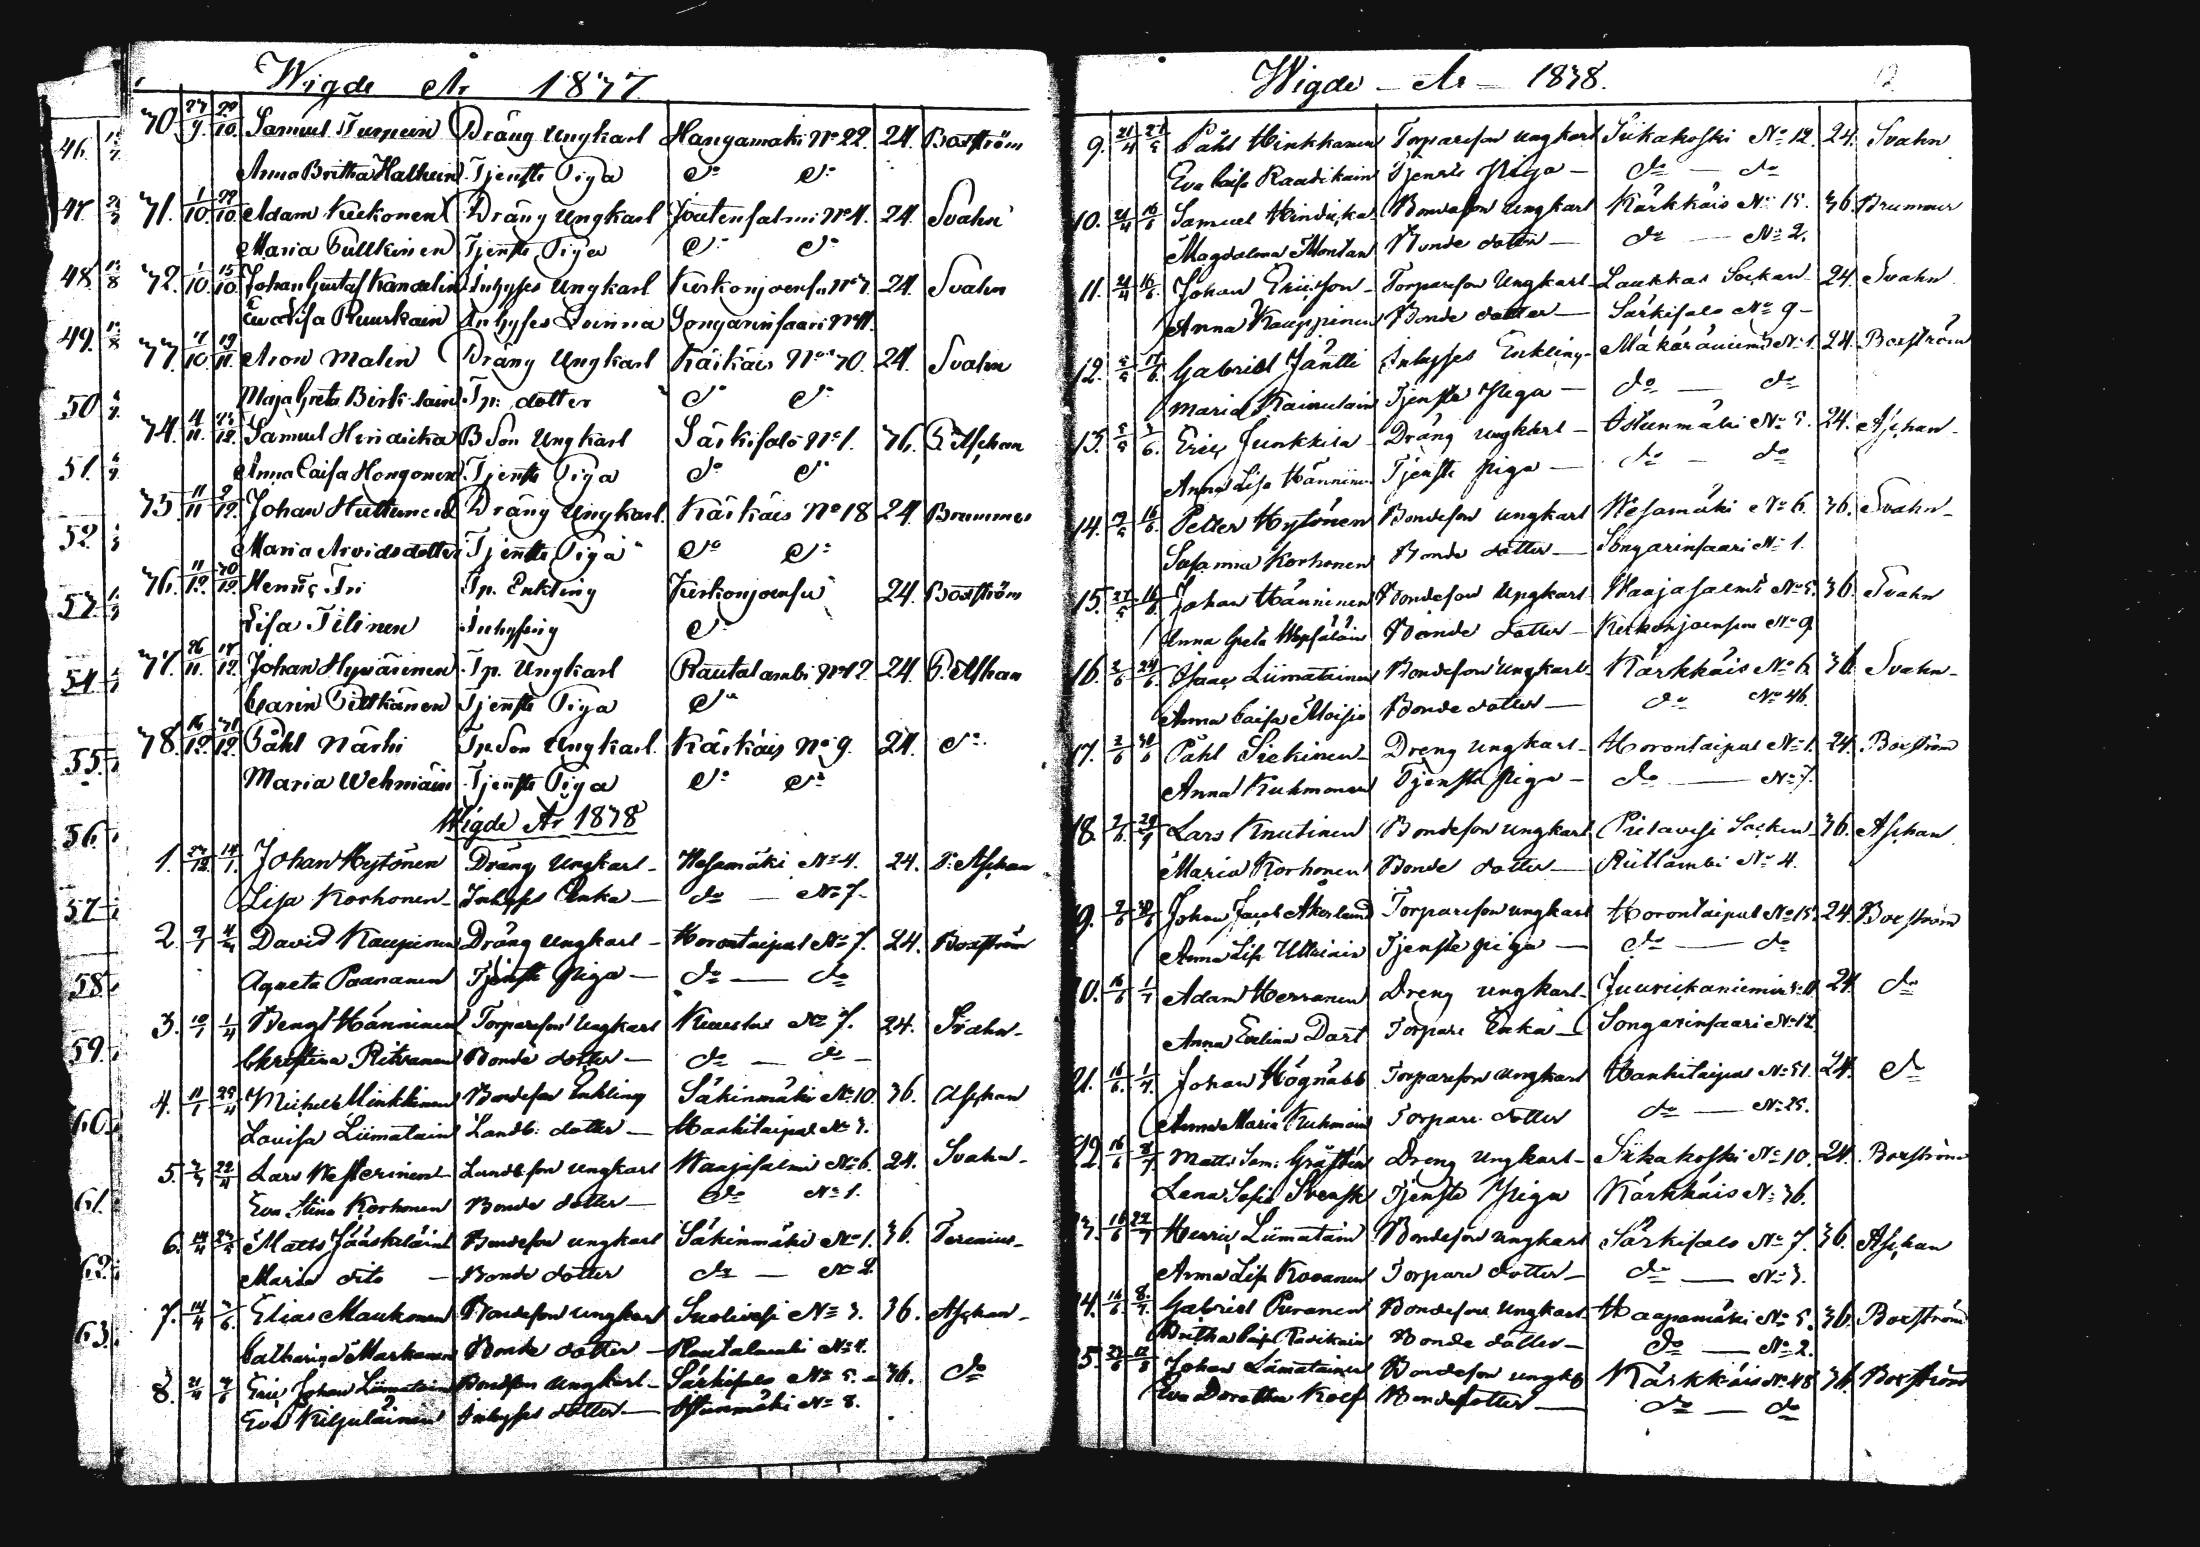 Wigde År 1837
70. 27/9. 29/10. Samuel Turpein Dräng Ungkarl Hangamäki No 22. 24. Boxström
Anna Britha Halhein Tjenste Piga do do
71. 1/10. 29/10. Adam Kiekonen Dräng Ungkarl Joutensalmi No 4. 24. Svahn
Maria Pulkinen Tjenste Piga do do
72. 1/10. 15/10. Johan Gustaf Kandelin Inhyses Ungkarl Kerkonjoensu No 7. 24. Svahn
Eva Lisa Ruuskain Inhyses Qvinna Songarinsaari
Aron Malin Dräng Ungkarl Käikäis No 70. 24. Svahn
Maja Greta Tp: dotter do do
74. Samuel Hindricka B Son Ungkarl Särkisalo No 1. 36. P Aschan
Anna Caisa Hongonen Tjenste Piga do do
75. 11/11. 9/12. Johan Huttunen Dräng Ungkarl Käikäis No 18 24. Brummer
Maria Arvidsdotter Tjenste Piga do do
76. 11/12. 30/12. Henric Tri Tp. Enkling Kerkonjoensu 24. Boxström
Lisa Tilinen Inhysing do
77. 26/11. Johan Hyvärinen Tp. Ungkarl Rautalambi No 12. 24. P. Aschan
Carin Pitkänen Tjenste Piga do
78. 16/12. 31/12. Påhl Närhi Tp Son Ungkarl Käikäis No 9. 24. do
Maria Wehniäin Tjenste Piga do do
Wigde År 1838
1. 27/12. 14/1. Johan Hytönen Dräng Ungkarl Wesamäki No 4. 24. P. Aschan
Lisa Korhonen Inhyses Enka do No 7
2. David Kaupinen Dräng Ungkarl Horontaipal No 7. 24. Boxström
Agneta Paananen Tjenste Piga do do
3. 10/1 1/4 Bengt Hänninen Torpareson Ungkarl No 7. 24. Svahn
Christina Ritvanen Bonde dotter do do
4. 11/1 29/4 Michell Minkkinen Bondeson Enkling Säkinmäki No 10. 36. Aschan
Lovisa Liimatain Landb: dotter Hankitaipal No 3.
5. 22/4 Lars Westerinen Landb son Ungkarl Waajasalmi No 6. 24. Svahn
Eva Stina Korhonen Bonde dotter do No 1.
6. Matts Jääskeläin Bondeson Ungkarl Säkinmäki No 1. 36. Ferenius
Maria dito Bonde dotter do No 2.
7. 14/4 Elias Maukonen Bondeson Ungkarl Suolivesi No 3. 36. Aschan
Catharina Markanen Bonde dotter Rautalambi No 4.
8. 21/4 Eric Johan Liimatain Bondeson Ungkarl Särkisalo No 5. 36. do
Eva Kiljulainen Inhyses dotter Istunmäki No 8.
Wigde År 1838.
9. 21/4 27/5 Påhl Hinkkanen Torpareson Ungkarl Siikakoski No 12. 24. Svahn
Eva Caisa Raadikain Tjenste Piga do do
10. 21/4 16/6 Samuel Hindricka Bondeson Ungkarl Kärkkäis No 15. 36. Brummer
Magdalena Montan Bonde dotter do No 2.
11. 21/4 16/6. Johan Ericsson Torpareson Ungkarl Laukkas Sockan 24. Svahn
Anna Kauppinen Bonde dotter Särkisalo No 9
12. 17/6. Gabriel Jäntti Inhyses Enkling No 1. 24. Boxström
Maria Kainulain Tjenste Piga do do
13. Eric Junkkila Dräng Ungkarl Istunmäki No 5. 24. Aschan
Anna Lisa Hänninen Tjenste Piga do do
14. 16/6. Petter Hytönen Bondeson Ungkarl Wesamäki No 6. 36. Svahn
Susanna Korhonen Bonde dotter Songarinsaari No 1.
15. 27/5 16/6. Johan Hänninen Bondeson Ungkarl Waajasalmi No 5. 36. Svahn
Anna Greta Bonde dotter Kerkonjoensu No 9
16. 2/6 24/6. Isaac Liimatainen Bondeson Ungkarl Kärkkäis No 6. 36 Svahn
Anna Caisa Moisio Bonde dotter do No 46.
17. 2/6 Påhl Siekinen Dreng Ungkarl Horontaipal No 1. 24. Boxström
Anna Kuhmonen Tjenste Piga do No 7.
18. 2/6. 29/7 Lars Knutinen Bondeson Ungkarl Pielavesi Socken 36. Aschan
Maria Korhonen Bonde dotter Rütlambi No 4.
9. Johan Jacob Åkerlund Torpareson Ungkarl Horontaipal No 15. 24. Boxström
Anna Lisa Ulkuiain Tjenste piga do do
0. 16/6 1/7 Adam Herranen Dreng Ungkarl 24. do
Anna Evelina Dart Torpare Enka Songarinsaari No 12.
21. 16/6 1/7. Johan Högnäbb Torpareson Ungkarl Hankitaipal No 51. 24. do
Anna Maria Kuhmoin Torpare dotter do No 25.
22. 16/6 Matts Sam: Grästen Dreng Ungkarl Siikakoski No 10. 24. Boxström
Lena Sofia Svensk Tjenste Piga Kärkkäis No 36.
3. 16/6 Henric Liimatain Bondeson Ungkarl Särkisalo No 7. 36. Aschan
Anna Lisa Kovanen Torpare dotter do No 3.
4. 16/6 8/7. Gabriel Puranen Bondeson Ungkarl Haapamäki No 5. 36. Boxström
Britha Caisa Radikain Bonde dotter do No 2.
5. Johan Liimatainen Bondeson Ungk Kärkkäis No 48 36. Boxström
Eva Dorothea Kolf Bondedotter do do
46.
47.
48.
49.
50
51.
52.
53.
54
55.
56.
57
58
59.
60
61.
62.
63.